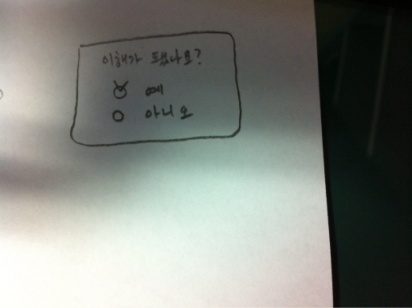 이해가 됐나요?
예
아니오